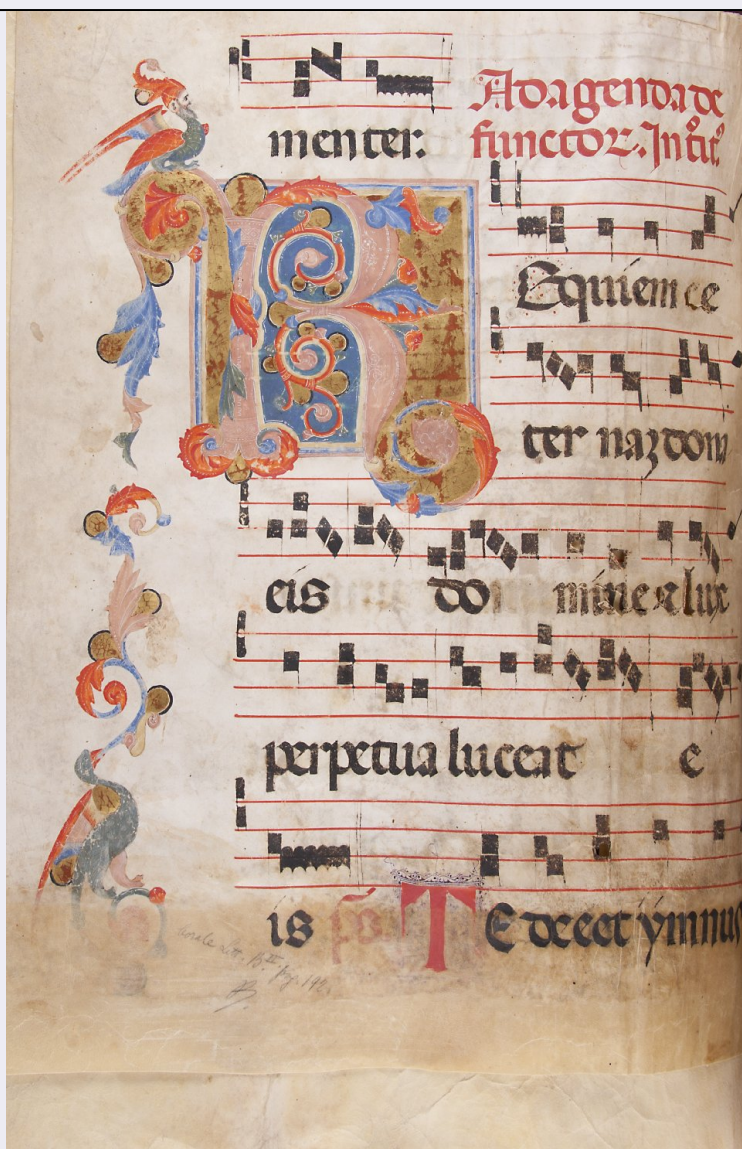 menter: Ad agenda de
functoꝝ. Introit᷒.
REquiem ce
ter nam dona
eis do mine et lux
perpetua luceat e
is ps̄ TE decet ymnus
pag. 192